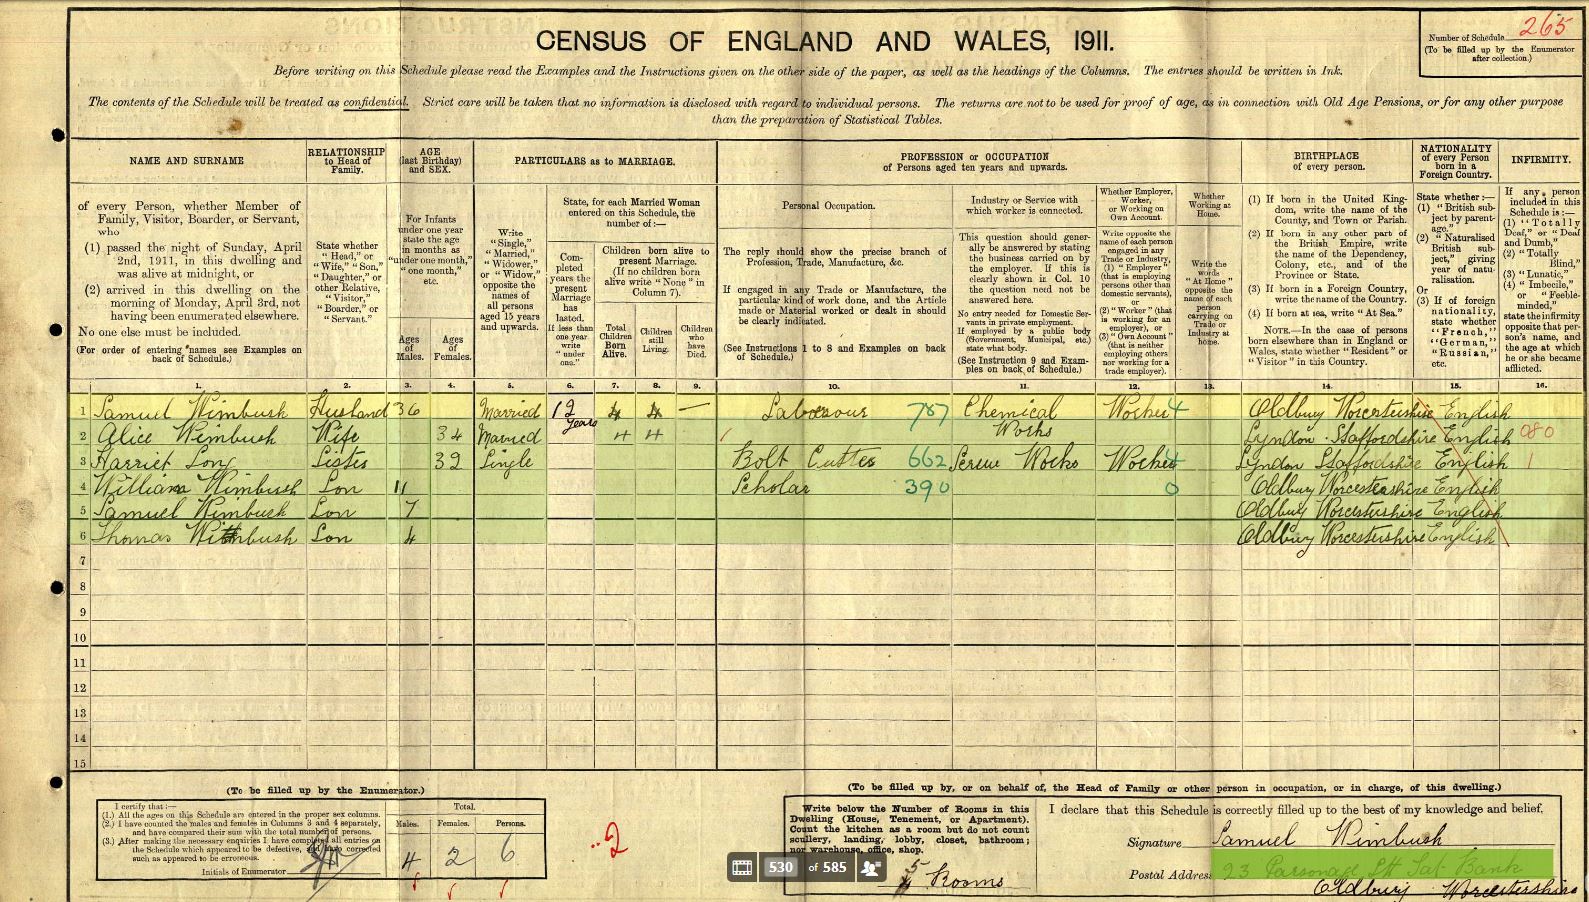 CENSUS OF ENGLAND AND WALES, 1911.
Number of Schedule 265
(To be filled up by the Enumerator after collection.)
Before writing on this Schedule please read the Examples and the Instructions given on the other side of the paper, as well as the headings of the Columns. The entries should be written in Ink.
The contents of the Schedule will be treated as confidential. Strict care will be taken that no information is disclosed with regard to individual persons. The returns are not to be used for proof of age, as in connection with Old Age Pensions, or for any other purpose
than the preparation of Statistical Tables.
NAME AND SURNAME
of every Person, whether Member of
Family, Visitor, Boarder, or Servant,
who
(1) passed the night of Sunday, April
2nd, 1911, in this dwelling and
was alive at midnight, or
(2) arrived in this dwelling on the
morning of Monday, April 3rd, not
having been enumerated elsewhere.
No one else must be included.
(For order of entering names see Examples on
back of Schedule.)
RELATIONSHIP
to Head of
Family.
State whether
"Head," or
"Wife," "Son,"
"Daughter," or
other Relative,
"Visitor,"
"Boarder," or
"Servant."
AGE
(last Birthday)
and SEX.
For Infants
under one year
state the age
in months as
"under one month,"
"one month,"
etc.
Ages of Males.
Ages of Females.
PARTICULARS as to MARRIAGE.
Write
"Single,"
"Married,"
"Widower,"
or "Widow,"
opposite the
names of
all persons
aged 15 years
and upwards.
State, for each Married Woman
entered on this Schedule, the
number of:—
Completed years the present Marriage has lasted.
If less than one year write "under one."
Children born alive to
present Marriage.
(If no children born
alive write "None" in
Column 7).
Total Children Born Alive.
Children still Living.
Children who have Died.
PROFESSION or OCCUPATION
of Persons aged ten years and upwards.
Personal Occupation.
The reply should show the precise branch of
Profession, Trade, Manufacture, &c.
If engaged in any Trade or Manufacture, the
particular kind of work done, and the Article
made or Material worked or dealt in should
be clearly indicated.
(See Instructions 1 to 8 and Examples on back
of Schedule.)
Industry or Service with
which worker is connected.
This question should generally be answered by stating
the business carried on by
the employer. If this is
clearly shown in Col. 10
the question need not be
answered here.
No entry needed for Domestic Servants in private employment.
If employed by a public body
(Government, Municipal, etc.)
state what body.
(See Instruction 9 and Examples on back of Schedule.)
Whether Employer,
Worker,
or Working on
Own Account.
Write opposite the
name of each person
engaged in any
Trade or Industry,
(1) "Employer"
(that is employing
persons other than
domestic servants),
or
(2) "Worker" (that
is working for an
employer), or
(3) "Own Account"
(that is neither
employing others
nor working for a
trade employer).
Whether
Working at
Home.
Write the
words
"At Home"
opposite the
name of each
person
carrying on
Trade or
Industry at
home.
BIRTHPLACE
of every person.
(1) If born in the United Kingdom, write the name of the
County, and Town or Parish.
(2) If born in any other part of
the British Empire, write
the name of the Dependency,
Colony, etc., and of the
Province or State.
(3) If born in a Foreign Country,
write the name of the Country.
(4) If born at sea, write "At Sea."
NOTE.—In the case of persons
born elsewhere than in England or
Wales, state whether "Resident" or
"Visitor" in this Country.
NATIONALITY
of every Person
born in a
Foreign Country.
State whether:—
(1) "British subject by parentage."
(2) "Naturalised
British
subject," giving
year of naturalisation.
Or
(3) If of foreign
nationality,
state whether
"French,"
"German,"
"Russian,"
etc.
INFIRMITY.
If any person
included in this
Schedule is:—
(1) "Totally
Deaf," or "Deaf
and Dumb,"
(2) "Totally
Blind,"
(3) "Lunatic,"
(4) "Imbecile,"
or "Feeble-
minded,"
state the infirmity
opposite that person's name, and
the age at which
he or she became
afflicted.
1. 2. 3. 4. 5. 6. 7. 8. 9. 10. 11. 12. 13. 14. 15. 16.
1 Samuel Wimbush Husband 36 Married 12 years 4 4 — Labourour 787 Chemical Works Worker 4 Oldbury Worcestershire English
2 Alice Wimbush Wife 34 Married 4 4 Lyndon Staffordshire English 080
3 Harriet Long Sister 32 Single Bolt Cutter 662 Screw Works Worker 4 Lyndon Staffordshire English 1
4 William Wimbush Son 11 Scholar 390 0 Oldbury Worcestershire English
5 Samuel Wimbush Son 7 Oldbury Worcestershire English
6 Thomas Wimbush Son 4 Oldbury Worcestershire English
7
8
9
10
11
12
13
14
15
(To be filled up by the Enumerator.)
I certify that:—
(1.) All the ages on this Schedule are entered in the proper sex columns.
(2.) I have counted the males and females in Columns 3 and 4 separately,
and have compared their sum with the total number of persons.
(3.) After making the necessary enquiries I have completed all entries on
the Schedule which appeared to be defective, and have corrected
such as appeared to be erroneous.
Initials of Enumerator
Total.
Males. Females. Persons.
4 2 6
2
(To be filled up by, or on behalf of, the Head of Family or other person in occupation, or in charge, of this dwelling.)
Write below the Number of Rooms in this
Dwelling (House, Tenement, or Apartment).
Count the kitchen as a room but do not count
scullery, landing, lobby, closet, bathroom;
nor warehouse, office, shop.
5 Rooms
I declare that this Schedule is correctly filled up to the best of my knowledge and belief.
Signature Samuel Wimbush
Postal Address 23 Parsonage Stt Sat Bank
Oldbury Worcestershire
530 of 585